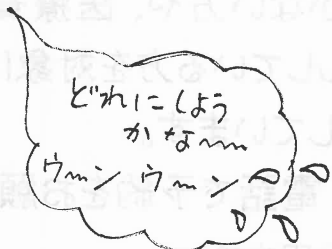 どれにしよう
かな〜〜
ウ〜ン ウ〜ン